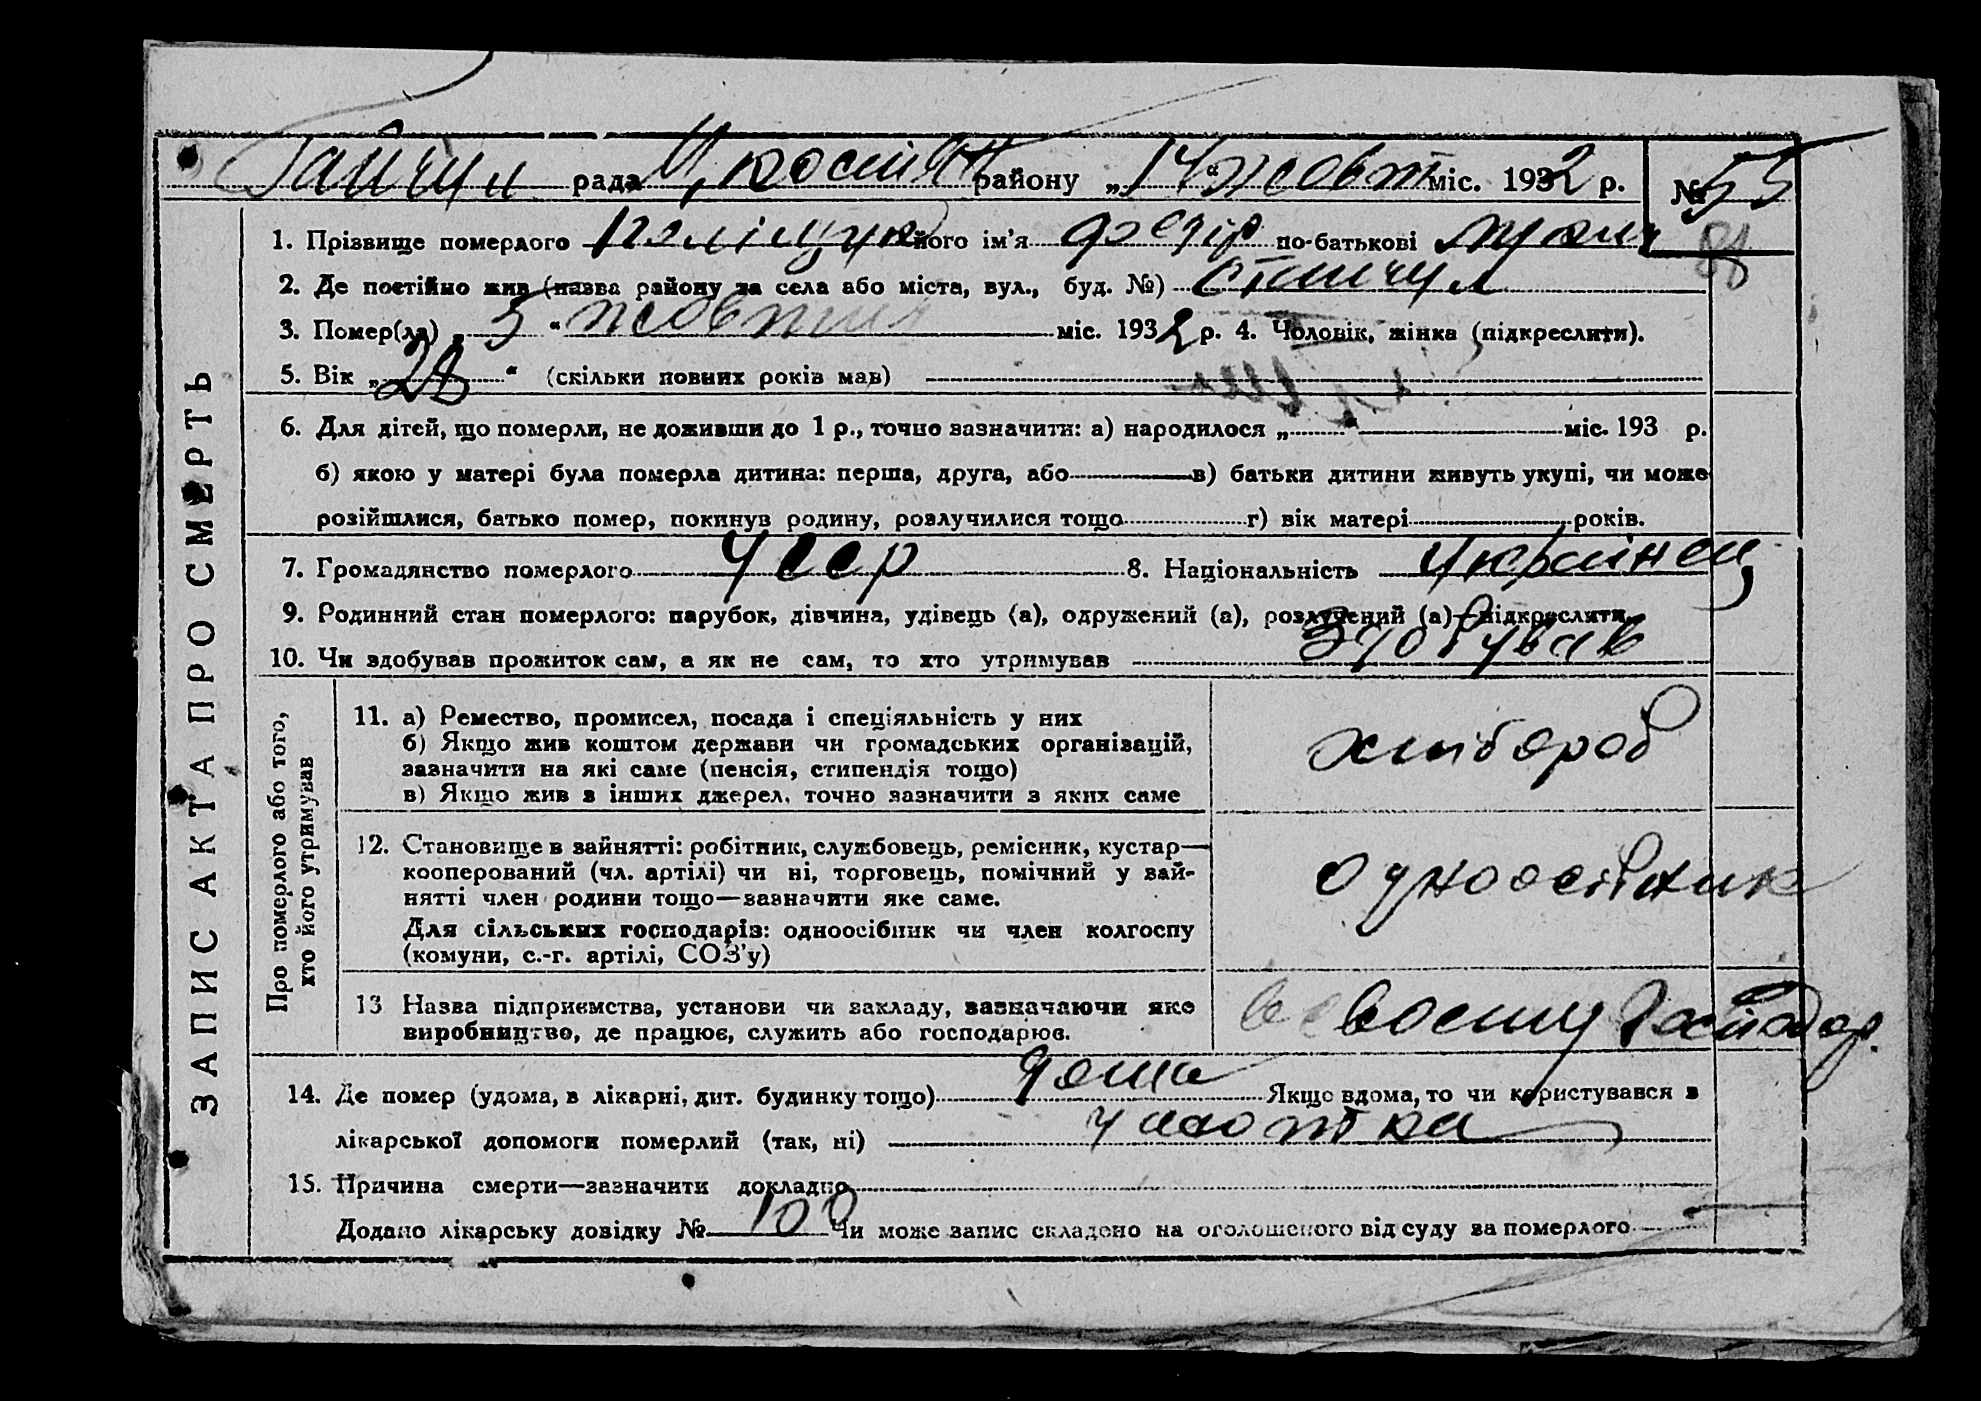 Гайчул рада району „14“ жовт міс. 1932 р. № 55
1. Прізвище померлого Поліщук його ім’я Федір по-батькові
88
2. Де постійно жив (назва району та села або міста, вул., буд. №) Гайчул
3. Помер(ла) „5“ жовтня міс. 1932 р. 4. Чоловік, жінка (підкреслити).
5. Вік „28“ (скільки повних років мав)
6. Для дітей, що померли, не доживши до 1 р., точно зазначити: а) народилося „ “ міс. 193 р.
б) якою у матері була померла дитина: перша, друга, або в) батьки дитини живуть укупі, чи може
розійшлися, батько помер, покинув родину, розлучилися тощо г) вік матері років.
7. Громадянство померлого УССР 8. Національність Українец
9. Родинний стан померлого: парубок, дівчина, удівець (а), одружений (а), розлучений (а)—підкреслити
10. Чи здобував прожиток сам, а як не сам, то хто утримував Здобував
ЗАПИС АКТА ПРО СМЕРТЬ
Про померлого або того,
хто його утримував
11. а) Ремество, промисел, посада і спеціяльність у них
б) Якщо жив коштом держави чи громадських організацій,
зазначити на які саме (пенсія, стипендія тощо)
в) Якщо жив з інших джерел, точно зазначити з яких саме
хлібороб
12. Становище в зайнятті: робітник, службовець, ремісник, кустар—
кооперований (чл. артілі) чи ні, торговець, помічний у зай-
нятті член родини тощо—зазначити яке саме.
Для сільських господарів: одноосібник чи член колгоспу
(комуни, с.-г. артілі, СОЗ’у)
одноосібник
13 Назва підприємства, установи чи закладу, зазначаючи яке
виробництво, де працює, служить або господарює.
в своему господар.
14. Де помер (удома, в лікарні, дит. будинку тощо) дома Якщо вдома, то чи користувався з
лікарської допомоги померлий (так, ні) чахотка
15. Причина смерти—зазначити докладно
Додано лікарську довідку № 100 Чи може запис складено на оголошеного від суду за померлого